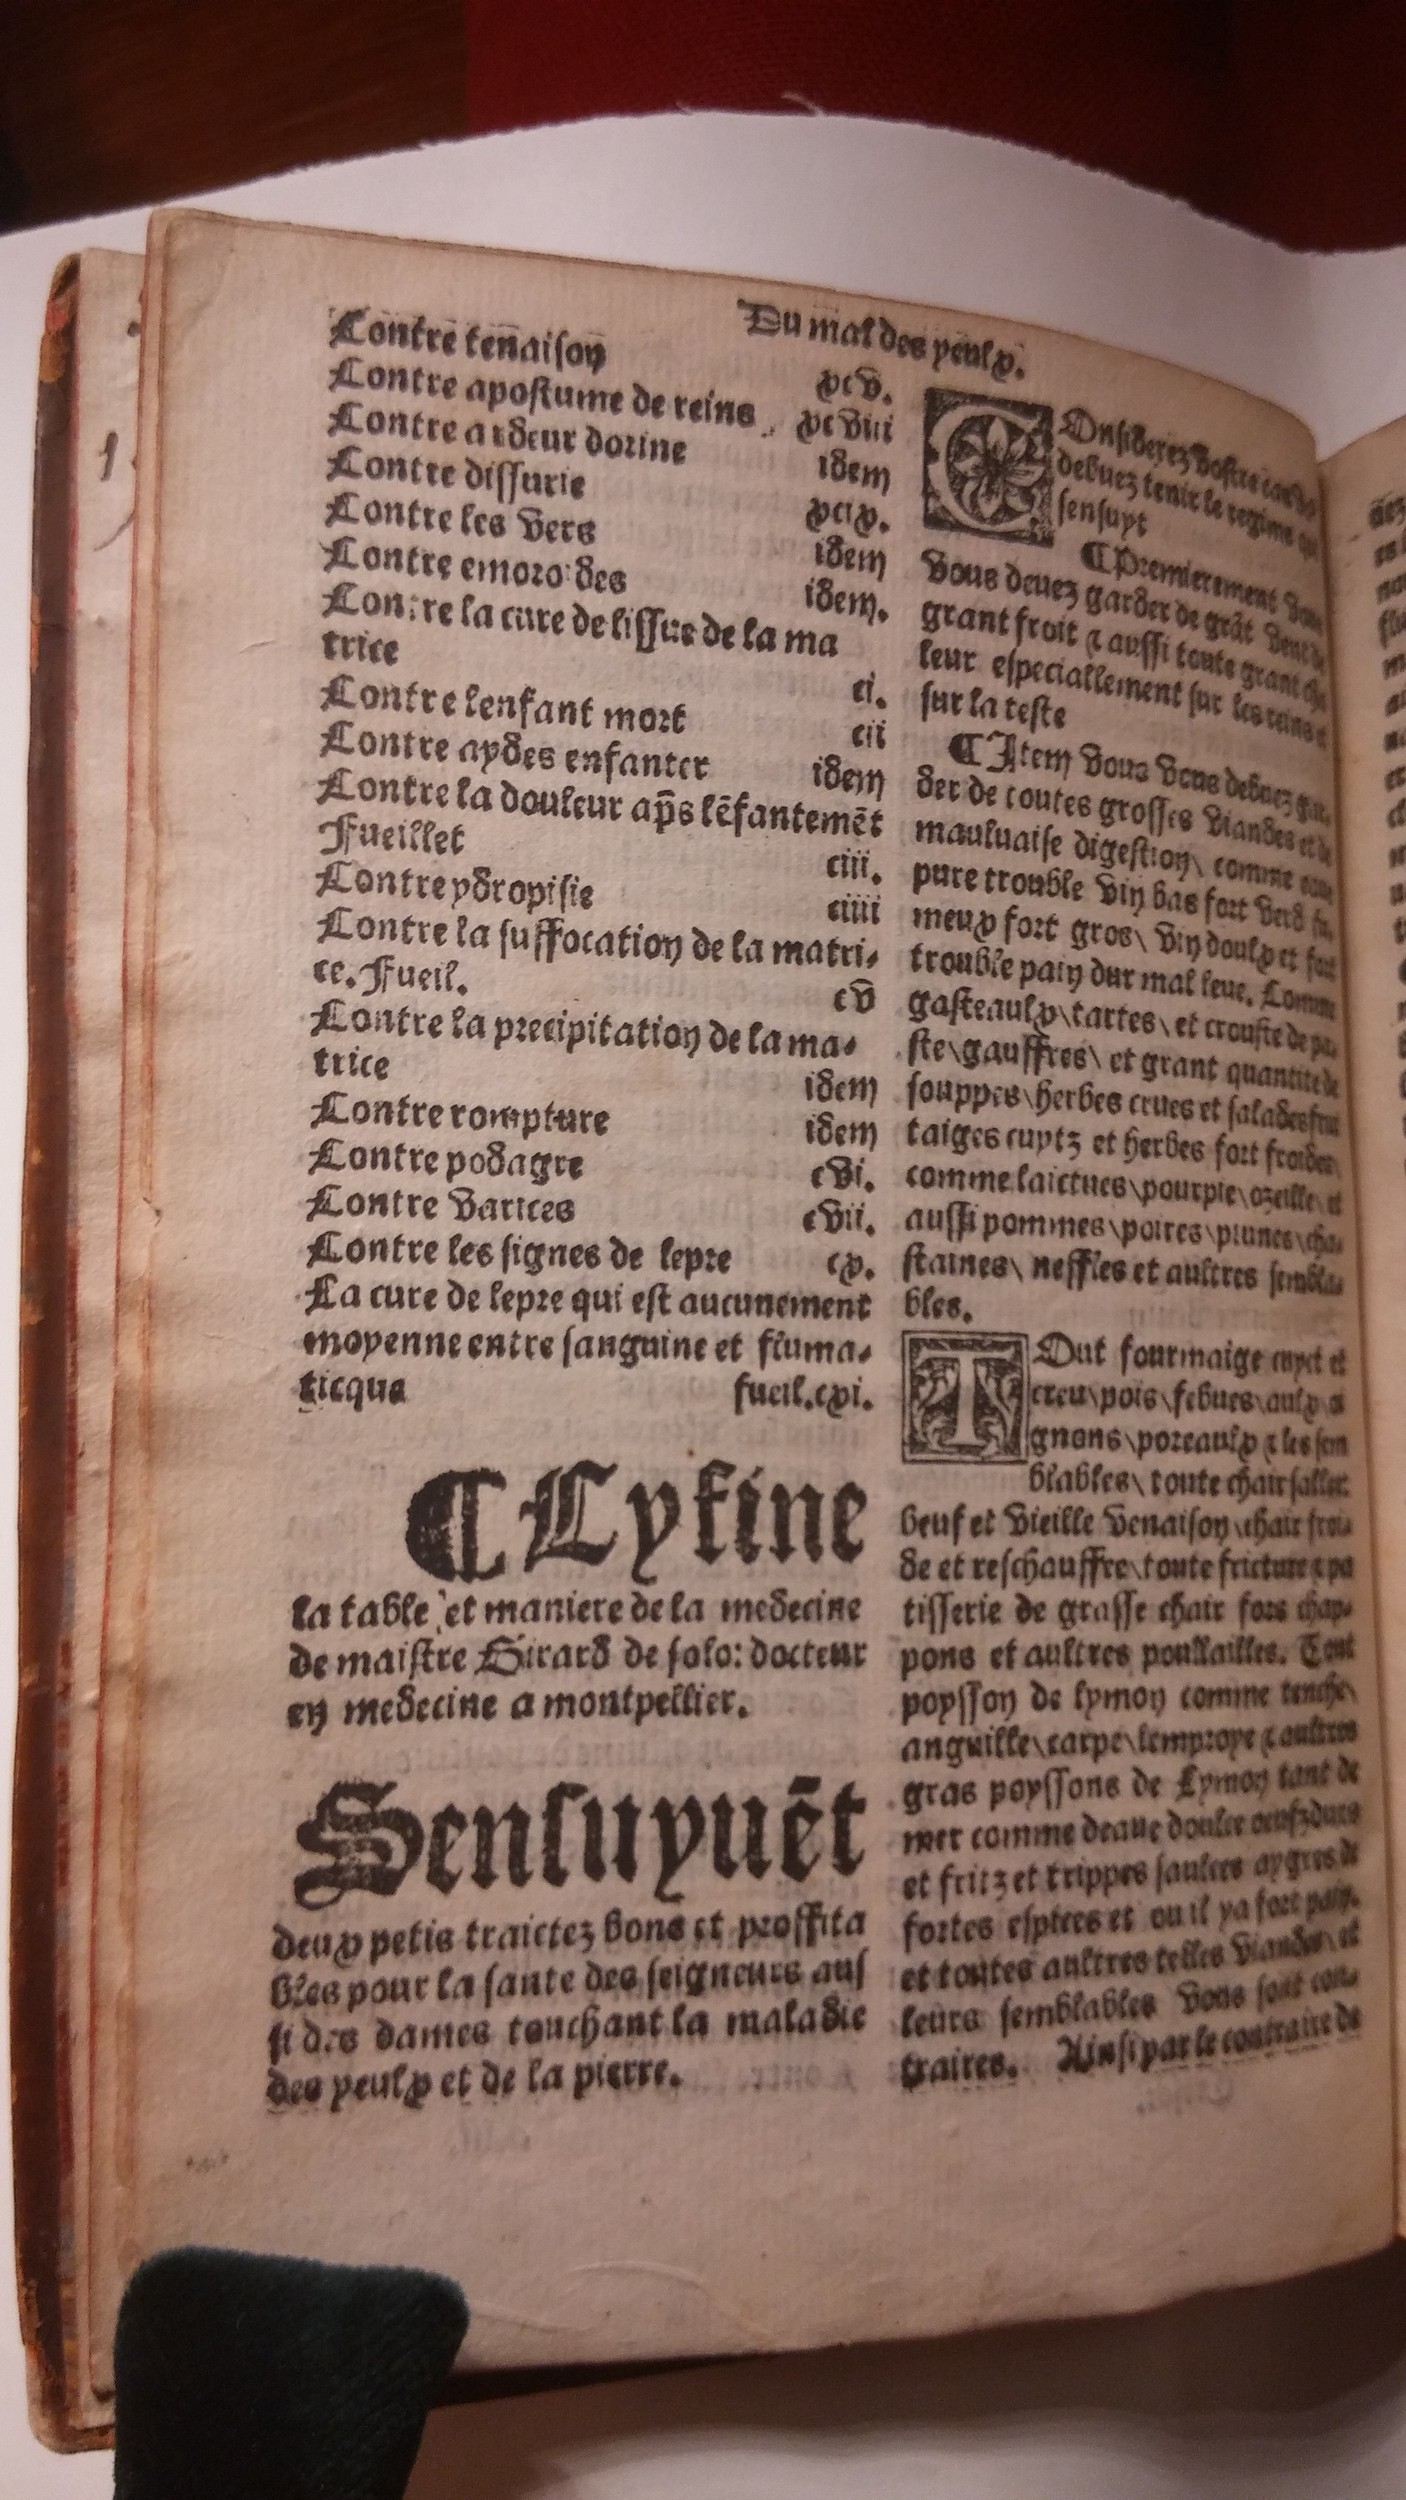 Contre tenaison xcv.
Contre apostume de reins xcviii
Contre ardeur dorine idem
Contre dissurie xcix.
Contre les vers idem
Contre emoroides idem.
Contre la cure de lissue de la ma
trice ci.
Contre lenfant mort cii
Contre aydes enfanter idem
Contre la douleur ap̄s lēfantemēt
Fueillet ciii.
Contre ydropisie ciiii
Contre la suffocation de la matri⸗
ce. Fueil. cv
Contre la precipitation de la ma⸗
trice idem
Contre rompture idem
Contre podagre cvi.
Contre varices cvii.
Contre les signes de lepre cx.
La cure de lepre qui est aucunement
moyenne entre sanguine et fluma⸗
ticque fueil.cxi.
¶ Cy fine
la table et maniere de la medecine
de maistre Girard de solo: docteur
en medecine a montpellier.
Sensuyuēt
deux petis traictez bons et proffita
bles pour la sante des seigneurs aus
si des dames touchant la maladie
des yeulx et de la pierre.
Du mal des yeulx.
COnsiderez vostre cas
debuez tenir le regime qui
sensuyt
¶ Premierement vous
vous devez garder de grāt vent de
grant froit ⁊ aussi toute grant cha
leur especiallement sur les reins et
sur la teste
¶ Item vous vous debuez gar⸗
der de toutes grosses viandes et de
mauluaise digestion\ comme eaue
pure trouble vin bas fort verd fu⸗
meux fort gros\ vin doulx et fort
trouble pain dur mal leue. Comme
gasteaulx\ tartes\ et crouste de pa⸗
ste\ gauffres\ et grant quantite de
souppes\ herbes crues et salades frui
taiges cuytz et herbes fort froides\
comme laictues\ pourpie\ ozeille\ et
aussi pommes\ poires\ prunes\ cha⸗
staines\ neffles et aultres sembla⸗
bles.
TOut fourmaige cuyct et
creu\ pois\ febues\ aulx oi
gnons\ poreaulx ⁊ les sem
blables\ toute chair sallee.
beuf et vieille venaison\ chair froi⸗
de et reschauffre\ toute fricture ⁊ pa
tisserie de grasse chair fors chap⸗
pons et aultres poullailles. Tout
poysson de lymon comme tenche\
anguille\ carpe\ lemproye ⁊ aultres
gras poyssons de Lymon tant de
mer comme deaue doulce oeufz durs
et fritz et trippes saulces aygres de
fortes espices et ou il ya fort pain.
et toutes aultres telles viandes\ et
leurs semblables vous sont con⸗
traires. Ainsi par le contraire de
1.